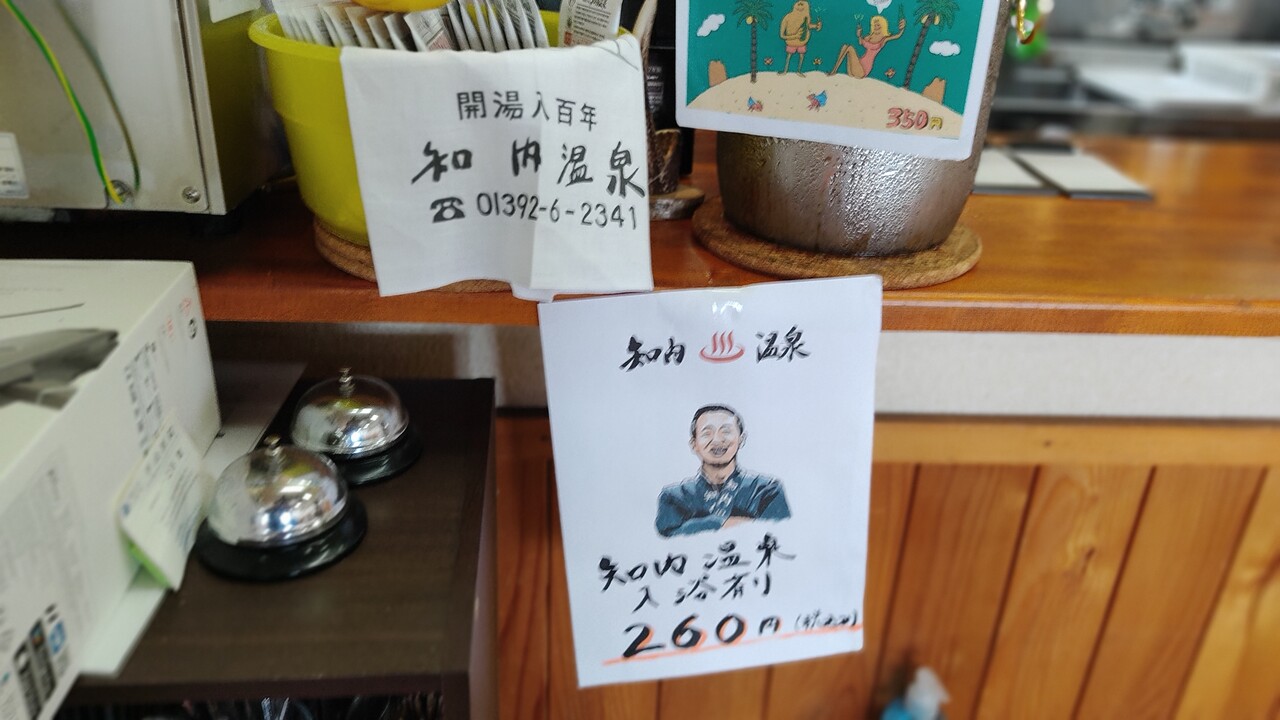 開湯八百年
知内温泉
☎ 01392-6-2341
350円
知内 ♨ 温泉
知内温泉
入浴剤
260円 (税込)